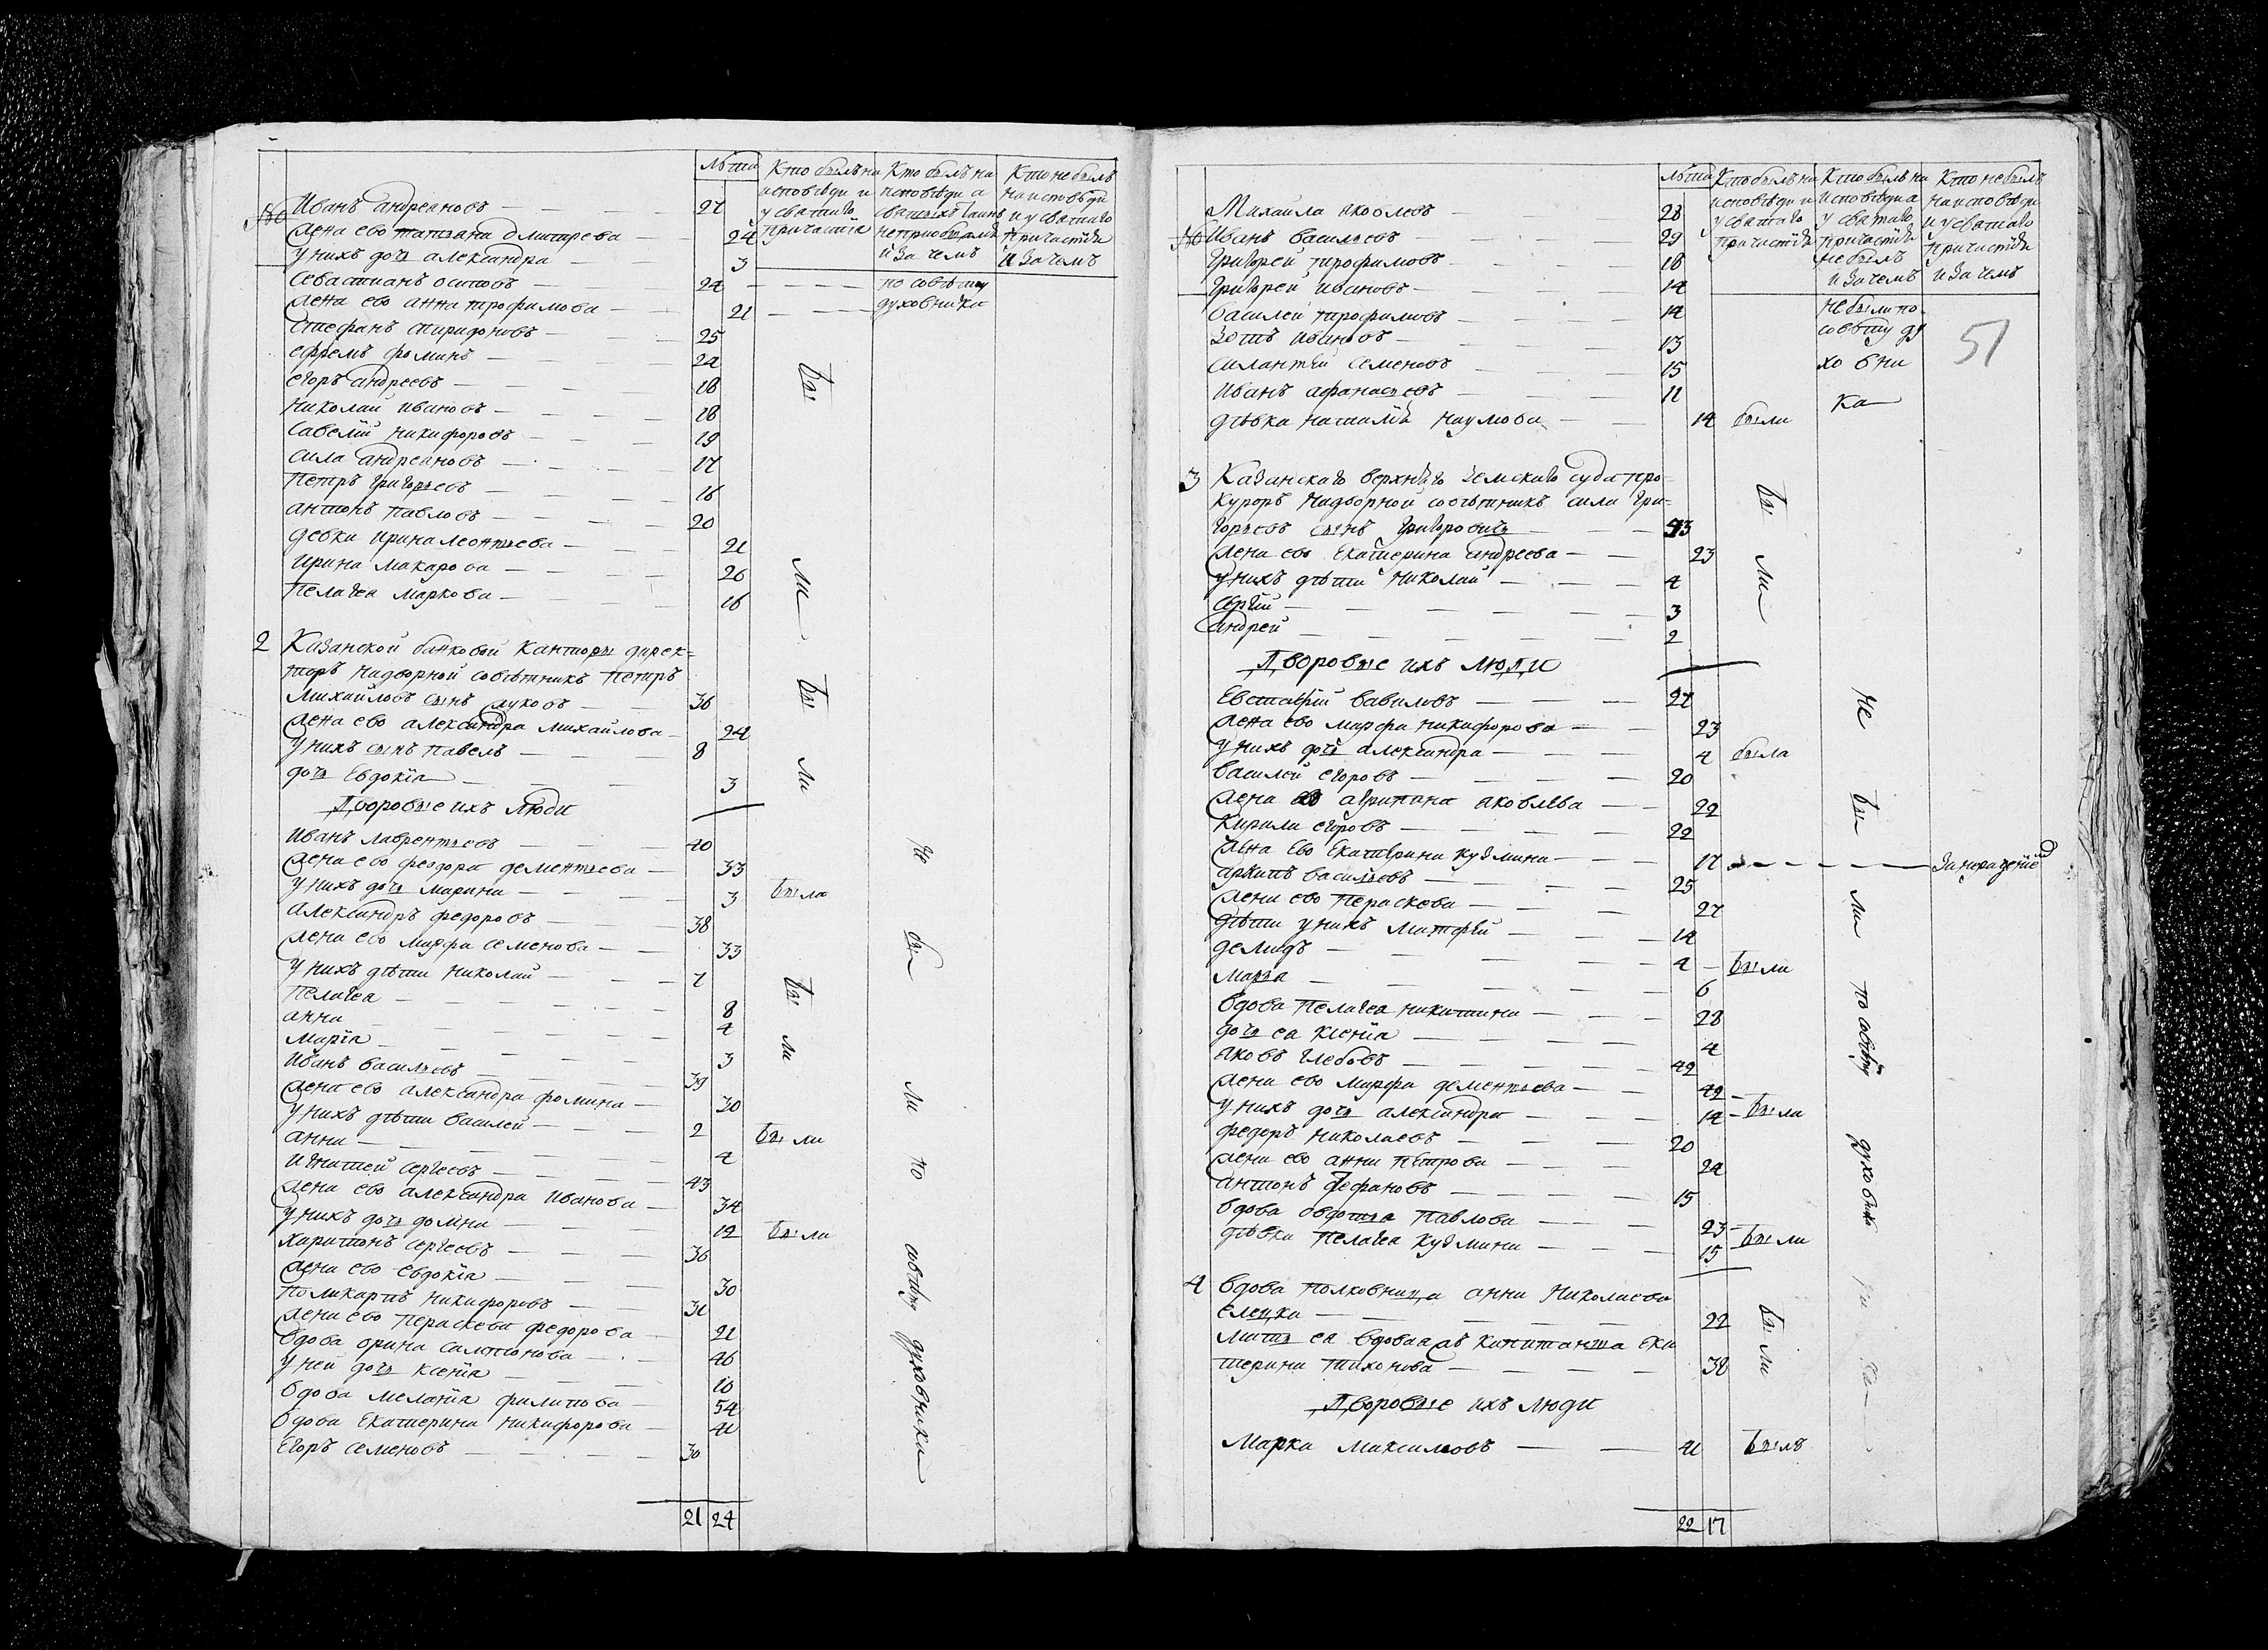 лѣта
Кто былъ на исповѣди и у святаго причастіа
Кто былъ на исповѣди а святыхъ таинъ не приобщался и за чемъ
Кто не былъ на исповѣди и у святаго причастіа и за чемъ
№
Иванъ андреановъ 27
жена ево татьяна дмитрева 24
у нихъ дочь александра 3
севастианъ осиповъ 24 по совѣту
жена ево анна трофимова 21 духовника
стефанъ спиридоновъ 25
ефремъ фоминъ 24 бы
егоръ андреевъ 18
николай ивановъ 18
савелій никифоровъ 19
сила андреановъ 17
петръ григорьевъ 16
антонъ павловъ 20
девки ирина леонтьева 21 ли
ирина макарова 26
пелагеа маркова 16
2 Казанской банковой канторы дирек=
торъ надворной совѣтникъ петръ
михайловъ сынъ жуковъ 36 бы
жена ево александра михайлова 24
у нихъ сынъ павелъ 8 ли
дочь евдокіа 3
Дворовые ихъ люди
иванъ лаврентьевъ 40 не
жена ево феодора дементьева 33
у нихъ дочь марина 3 была
александръ федоровъ 38
жена ево марфа семенова 33 бы
у нихъ дѣти николай 7
пелагеа 8 бы
анна 4
маріа 3 ли
иванъ васильевъ 39
жена ево александра фомина 30 ли
у нихъ дѣти василей 2 были
анна 4
игнатей сергеевъ 43 по
жена ево александра иванова 34
у нихъ дочь домна 12 была
харитонъ сергеевъ 36
жена ево евдокіа 30 совѣту
поликарпъ никифоровъ 31
жена ево параскева федорова 21
вдова орина самсонова 46 духовника
у ней дочь ксеніа 10
вдова меланіа филипова 54
вдова екатерина никифорова 41
егоръ семеновъ 30
21 24
лѣта
Кто былъ на исповѣди и у святаго причастіа
Кто былъ на исповѣди а у святаго причастіа не былъ и за чемъ
Кто не былъ на исповѣди и у святаго причастіа и за чемъ
51
Михайла яковлевъ 28
№ Иванъ васильевъ 29
григорей трофимовъ 18
григорей ивановъ 14
василей трофимовъ 14 не были по
зотъ ивановъ 13 совѣту ду
силантей семеновъ 15 ховни
иванъ афанасьевъ 11 ка
дѣвка наталіа наумова 14 были
3 Казанскаго верхняго земскаго суда про=
куроръ надворной совѣтникъ сила гри= бы
горьевъ сынъ григоровичъ 43
жена ево екатерина андреева 23
у нихъ дѣти николай 4 ли
сергій 3
андрей 2
Дворовые ихъ люди
евстафій вавиловъ 27 не
жена ево марфа никифорова 23
у нихъ дочь александра 4 была
василей егоровъ 20
жена ево агрипина яковлева 22 бы
кирила егоровъ 22
жена ево екатерина кузмина 17 за нерадѣніе
архипъ васильевъ 25
жена ево параскева 27 ли
дѣти у нихъ матфей 14
демидъ 4 были
марья 6
вдова пелагеа никитина 28 по совѣту
дочь еа ксеніа 4
яковъ глебовъ 42
жена ево марфа дементьева 42
у нихъ дочь александра 14 была
федоръ николаевъ 20
жена ево анна петрова 24 духовни
антонъ стефановъ 15
вдова авдотья павлова 23
дѣвка пелагеа кузмина 15 были
4 вдова полковница анна николаева
елецка 22 бы
мать еа вдовая капитанша ека
терина тихонова 38 ли ка
Дворовые ихъ люди
Марка максимовъ 41 былъ
22 17